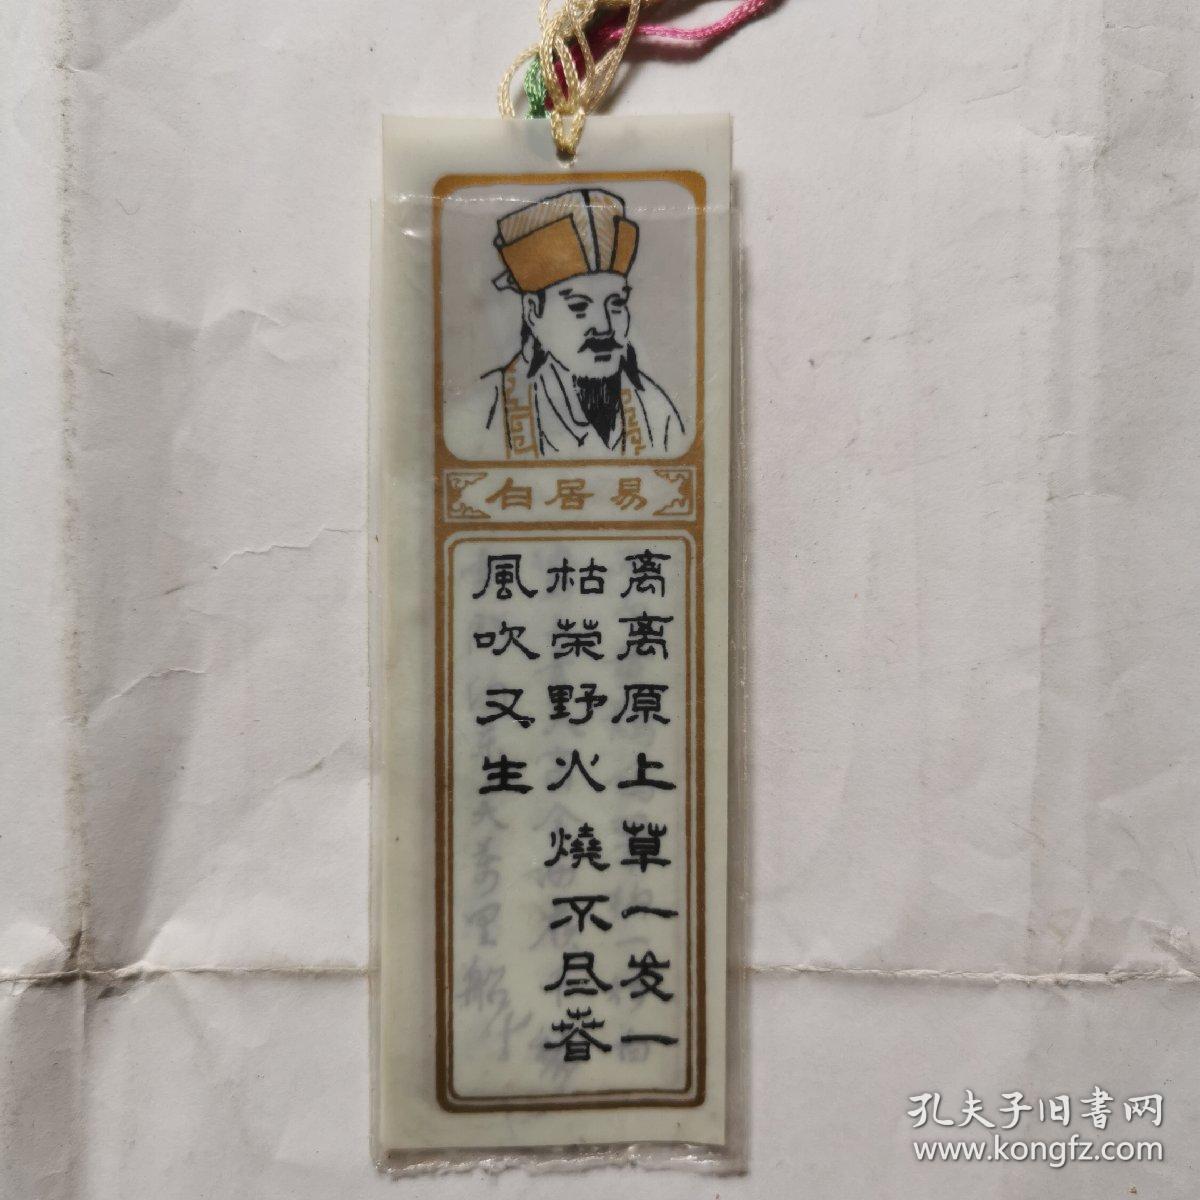 白居易
离离原上草一岁一
枯荣野火燒不尽春
風吹又生
孔夫子旧書网
www.kongfz.com